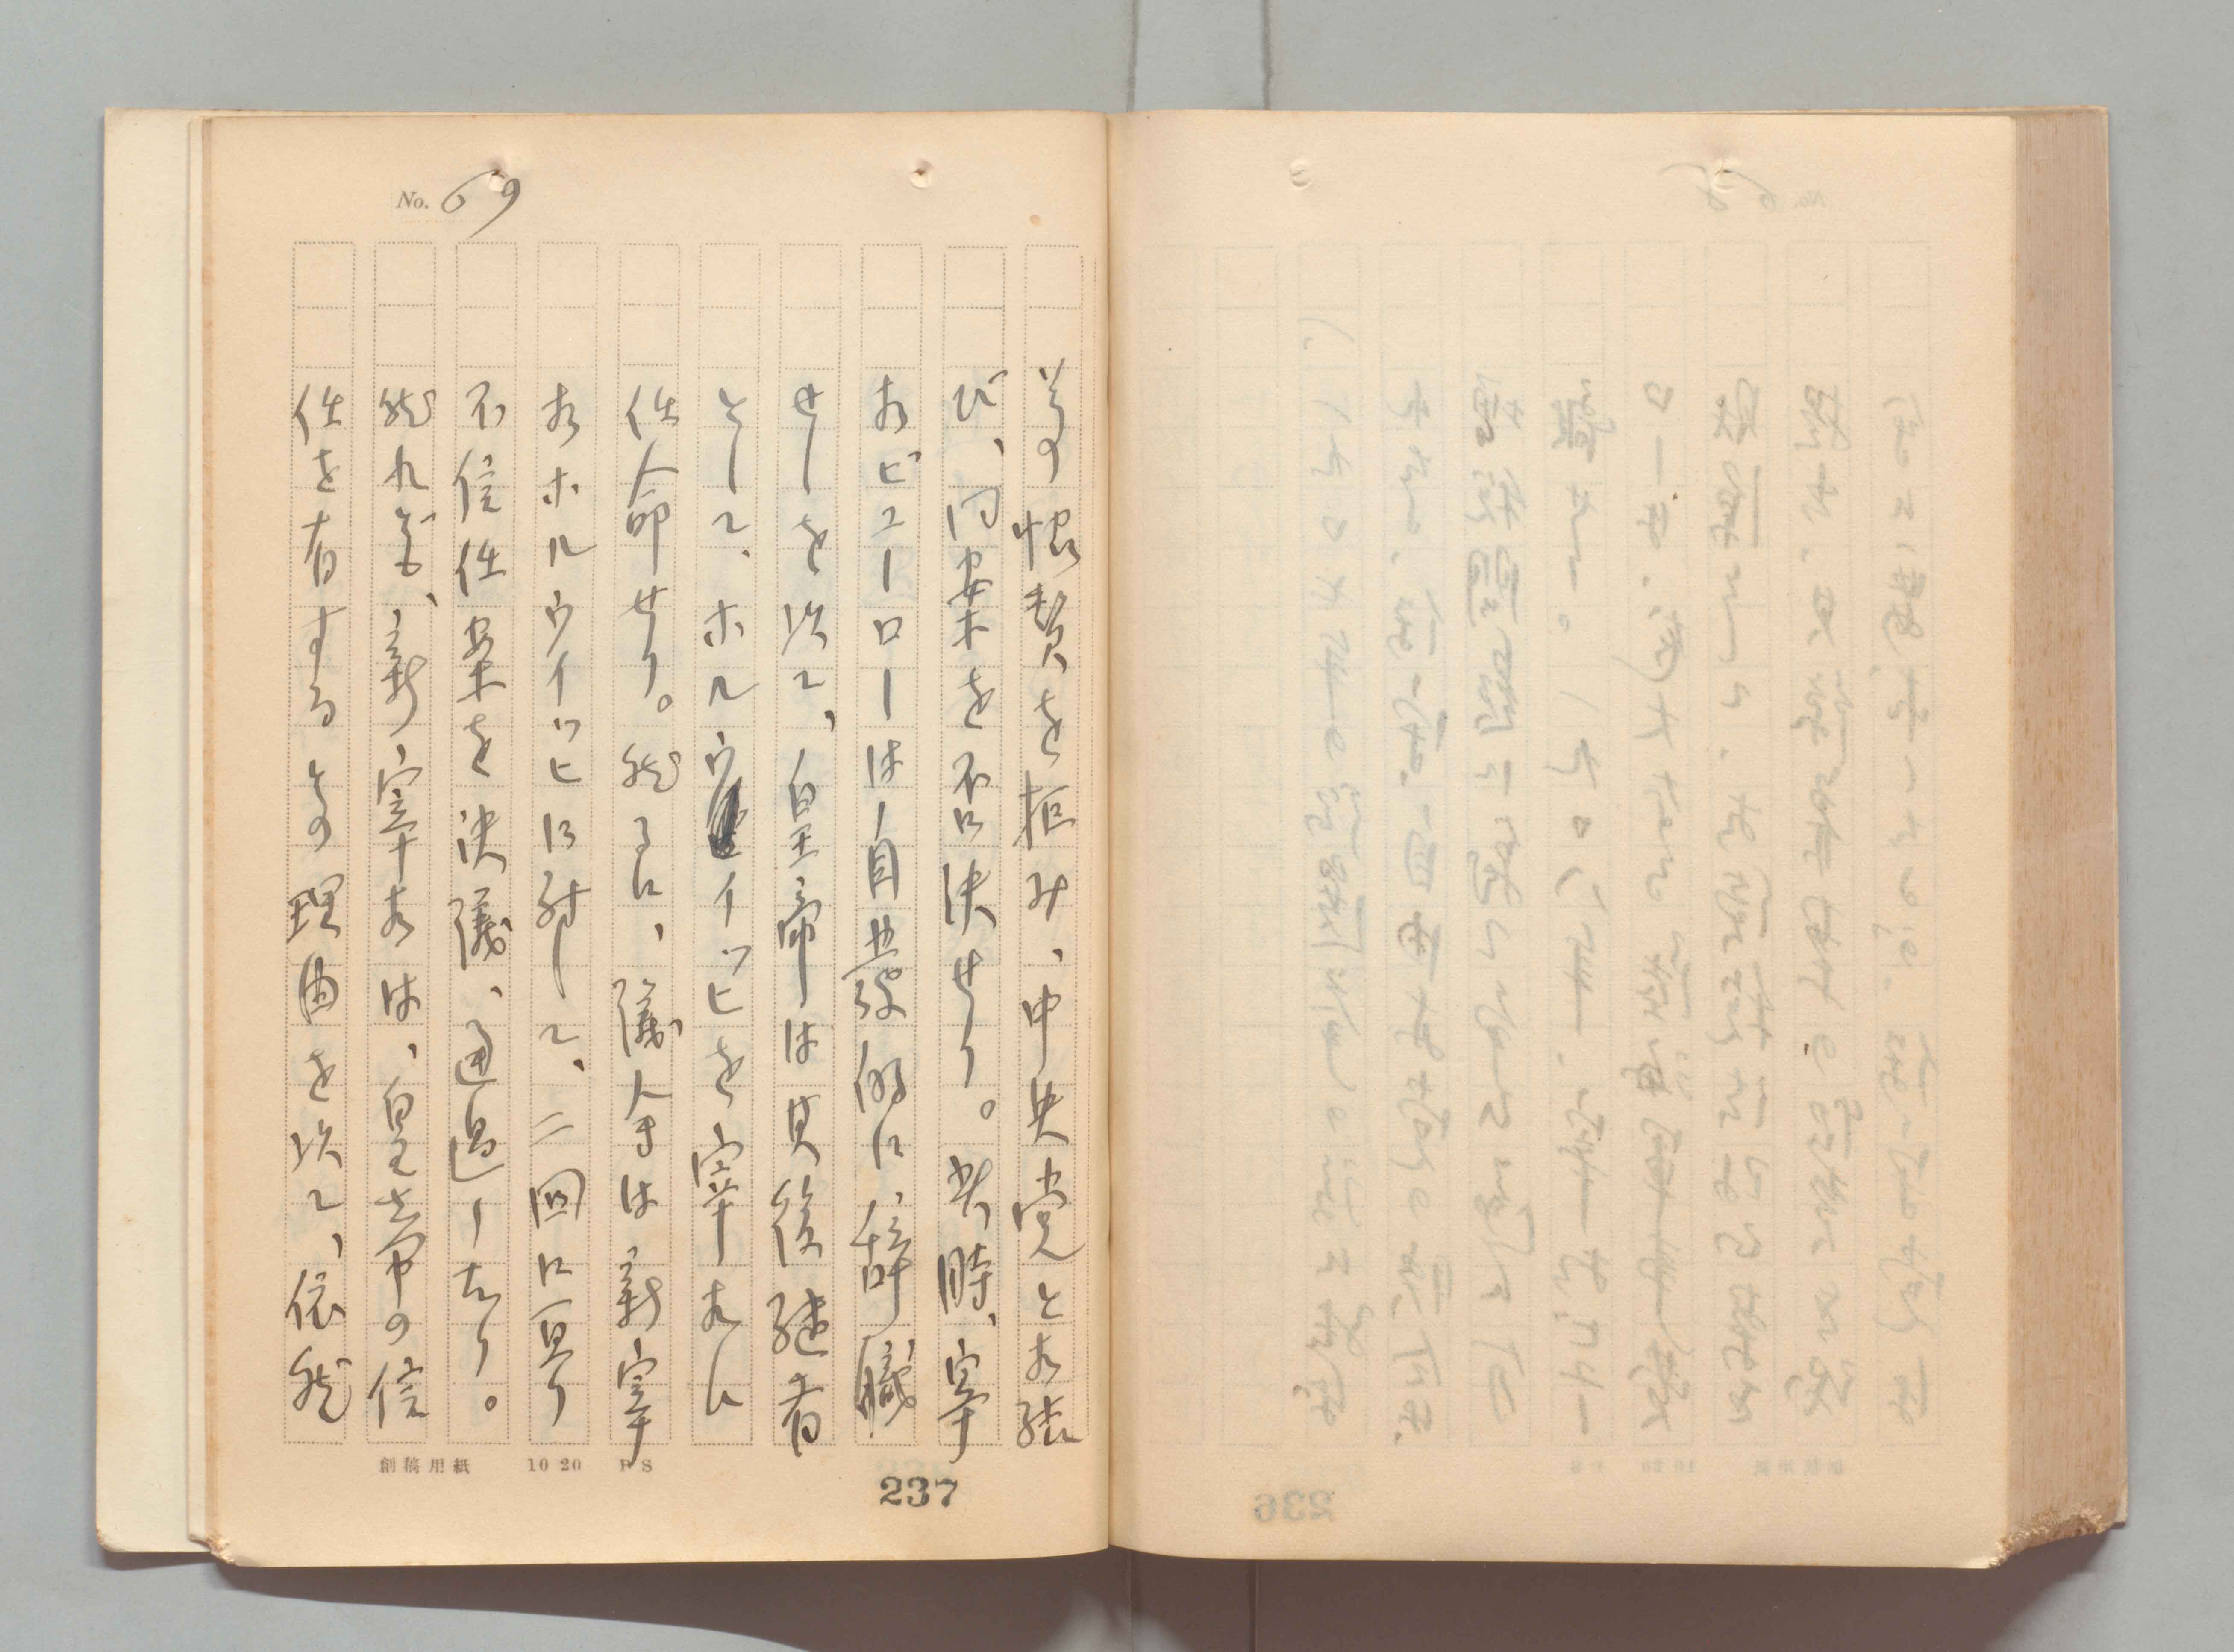 No. 69
等の協賛を拒み、中央党と相結
び、同案を否決せり。当時、宰
相ビューローは自発的に辞職
せしを以て、皇帝は其後継者
として、ホルウイッヒを宰相に
任命せり。然るに、議会は新宰
相ホルウイッヒに対して、二回に亘り
不信任案を決議、通過したり。
然れども、新宰相は、皇帝の信
任を有するとの理由を以て、依然
創稿用紙 10 20 P S
237